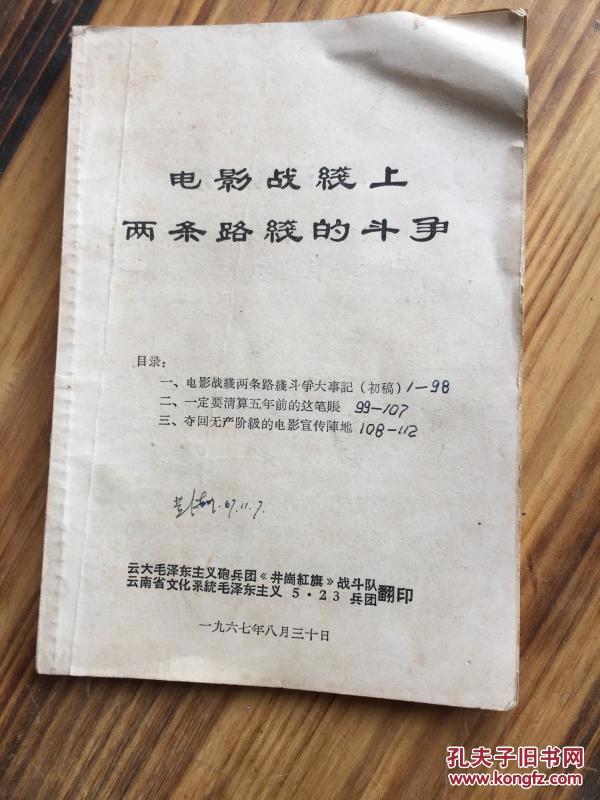 电影战綫上
两条路綫的斗争
目录：
一、电影战綫两条路綫斗爭大事記（初稿）1—98
二、一定要清算五年前的这笔賬 99—107
三、夺回无产阶級的电影宣传陣地 108—112
67.11.7.
云大毛泽东主义砲兵团《井崗紅旗》战斗队
云南省文化系統毛泽东主义 5·23 兵团翻印
一九六七年八月三十日
孔夫子旧书网
www.kongfz.com